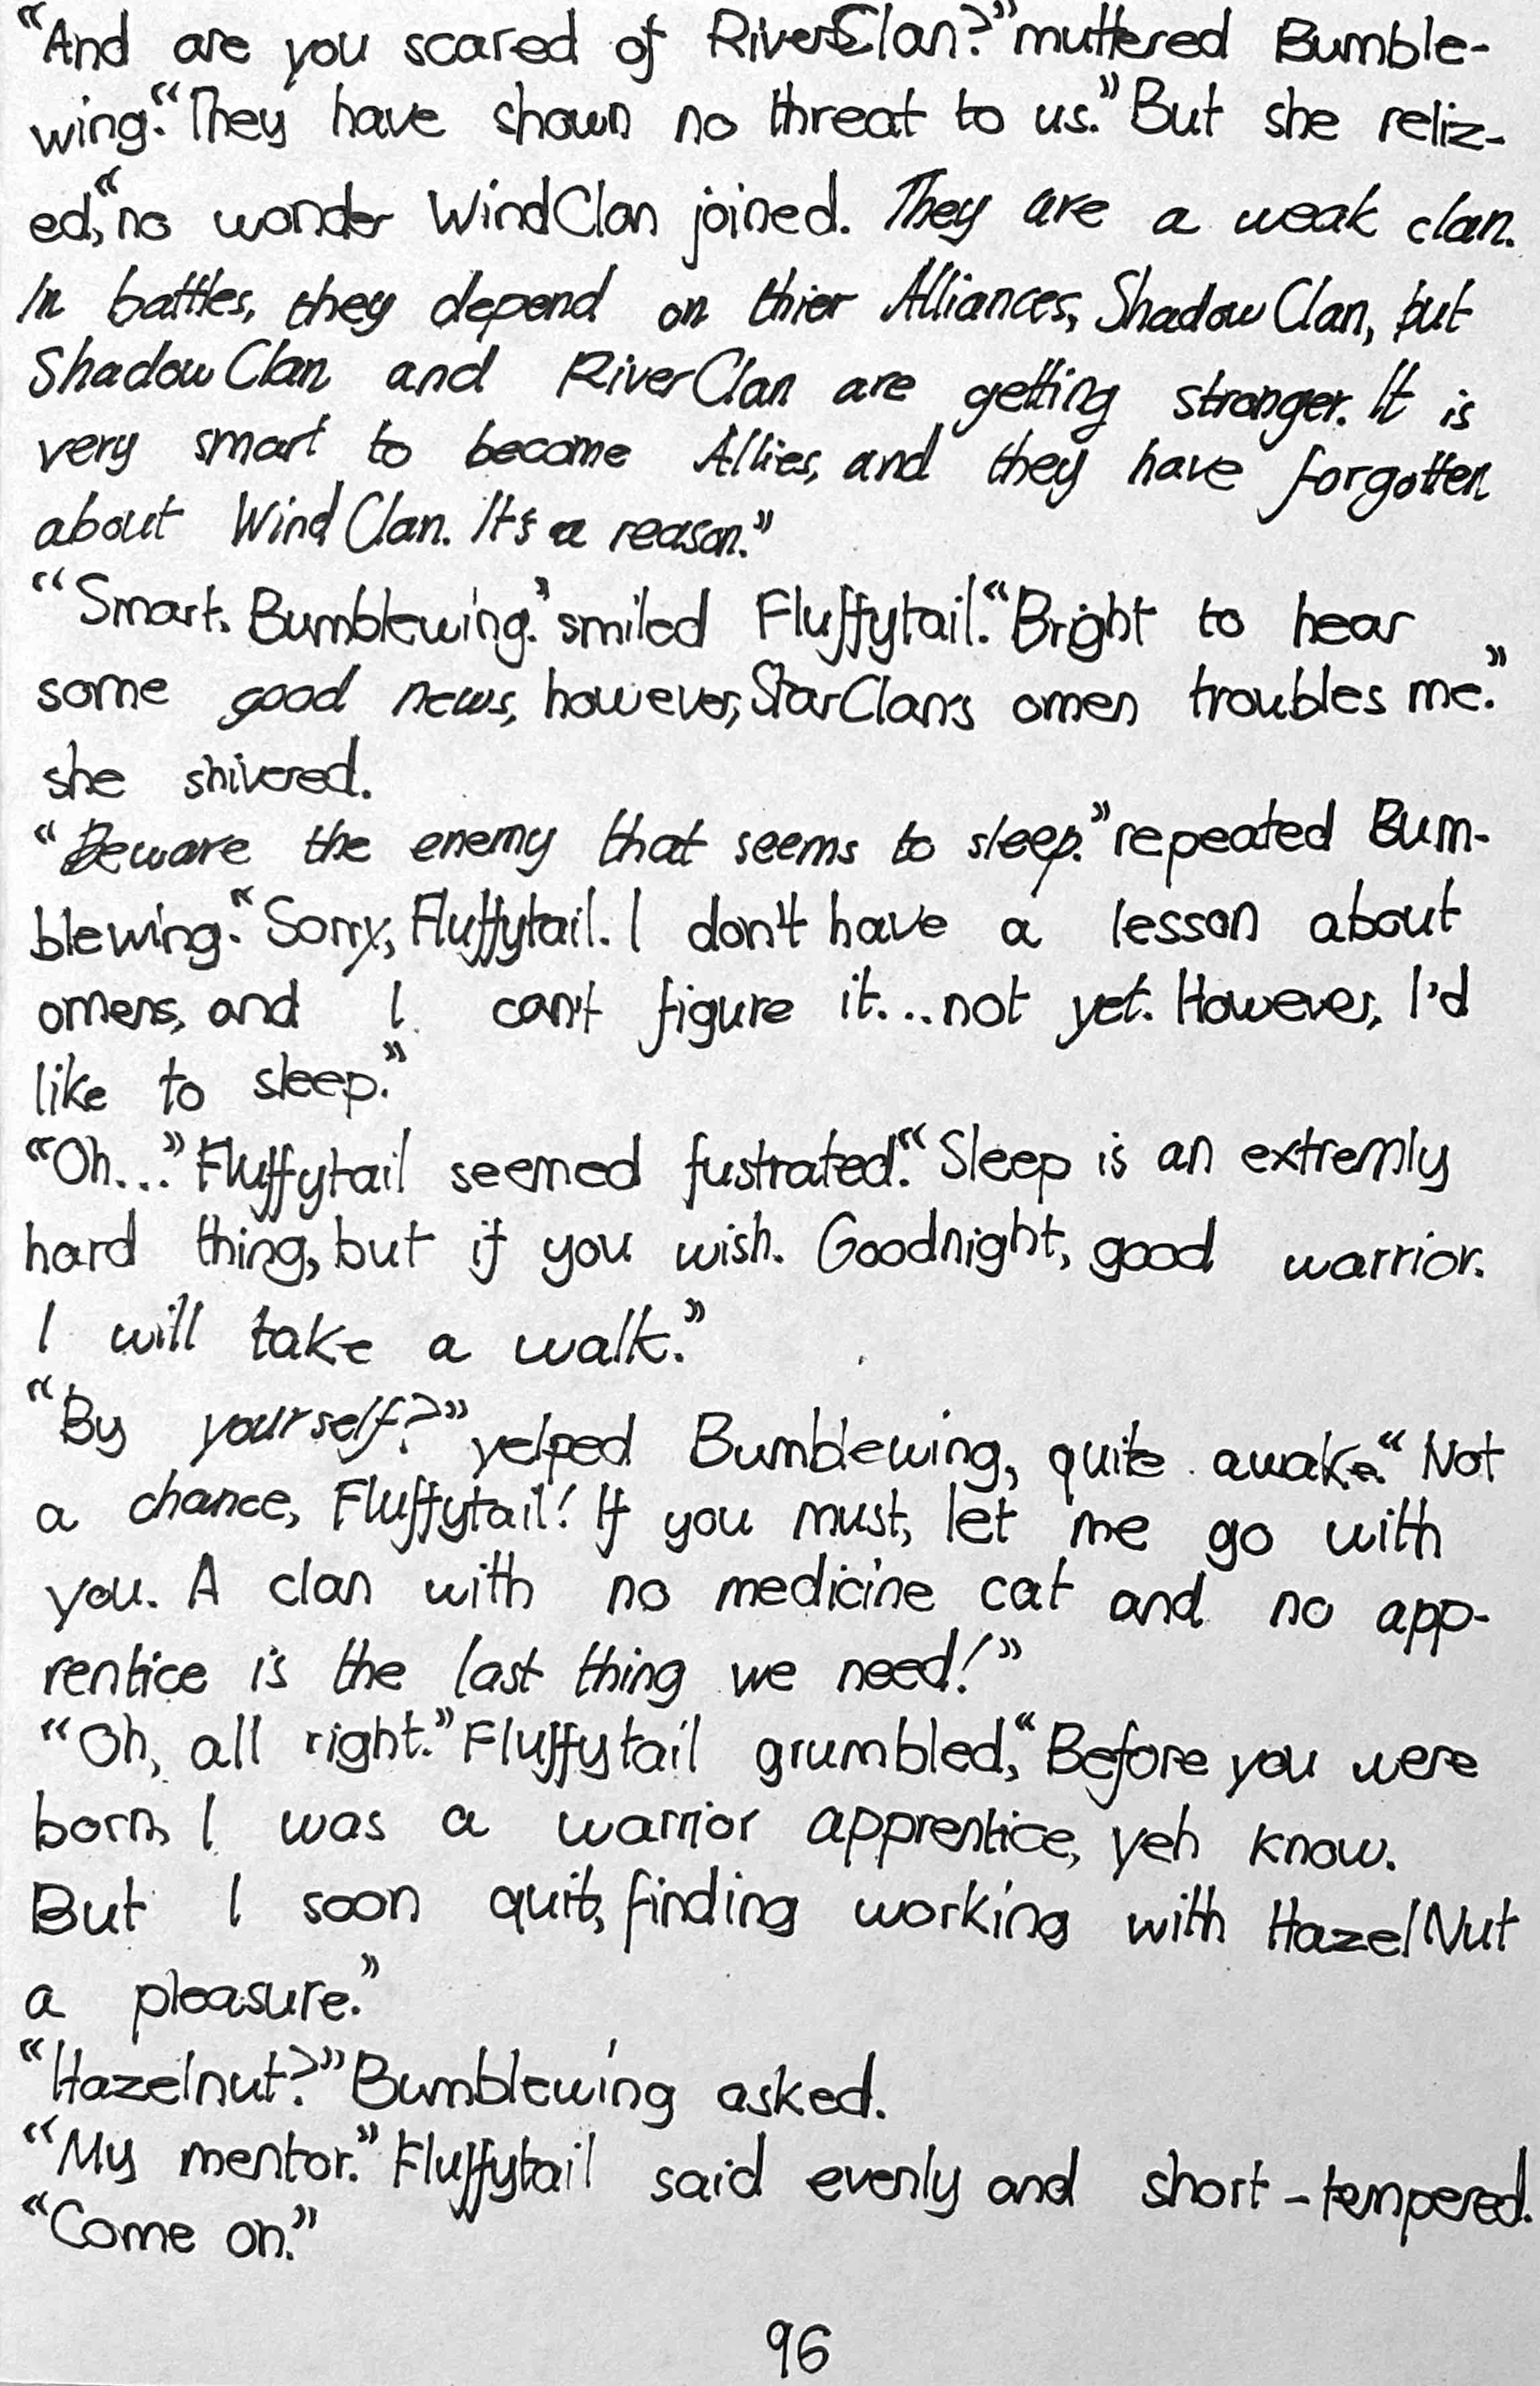 “And are you scared of RiverClan?” muttered Bumble-
wing. “They have shown no threat to us.” But she reliz-
ed, “no wonder WindClan joined. They are a weak clan.
In battles, they depend on thier Alliances, ShadowClan, but
ShadowClan and RiverClan are getting stronger. It is
very smart to become Allies, and they have forgotten
about WindClan. It's a reason.”
“Smart. Bumblewing.” smiled Fluffytail. “Bright to hear
some good news, however, StarClan's omen troubles me.”
she shivered.
“Beware the enemy that seems to sleep.” repeated Bum-
blewing. “Sorry, Fluffytail. I don't have a lesson about
omens, and I can't figure it...not yet. However, I'd
like to sleep.”
“Oh...” Fluffytail seemed fustrated. “Sleep is an extremly
hard thing, but if you wish. Goodnight, good warrior.
I will take a walk.”
“By yourself?” yelped Bumblewing, quite awake. “Not
a chance, Fluffytail! If you must, let me go with
you. A clan with no medicine cat and no app-
rentice is the last thing we need!”
“Oh, all right.” Fluffytail grumbled, “Before you were
born, I was a warrior apprentice, yeh know.
But I soon quit, finding working with HazelNut
a pleasure.”
“Hazelnut?” Bumblewing asked.
“My mentor.” Fluffytail said evenly and short-tempered.
“Come on.”
96